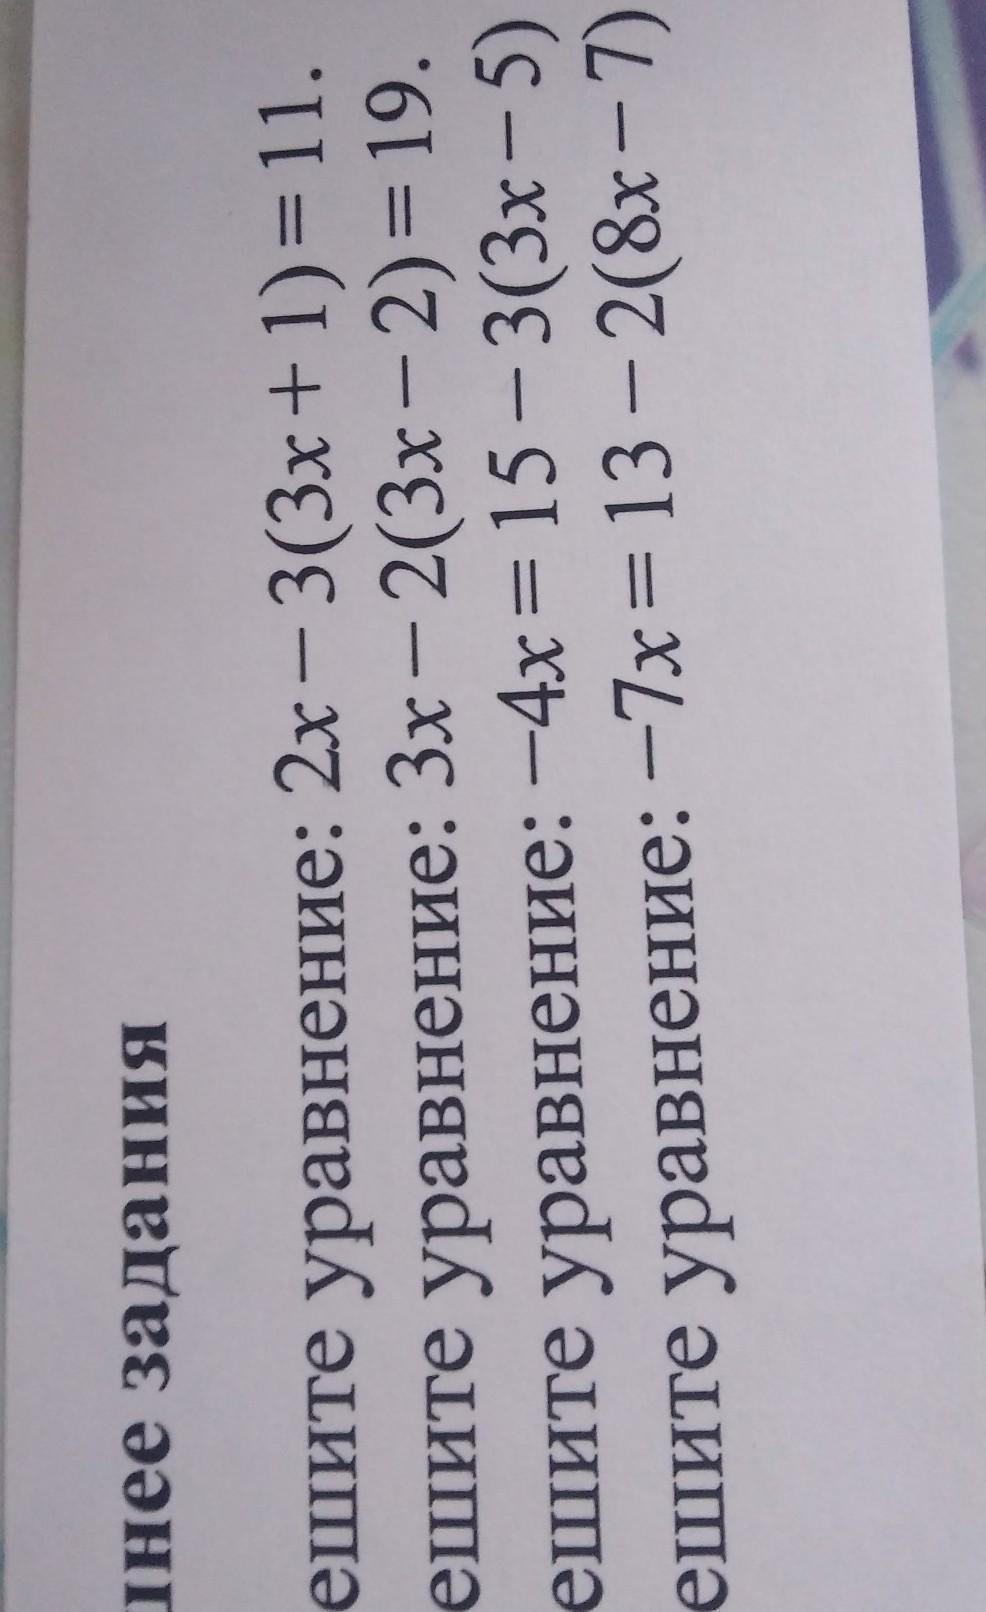 шнее задания
ешите уравнение: 2x − 3(3x + 1) = 11.
ешите уравнение: 3x − 2(3x − 2) = 19.
ешите уравнение: −4x = 15 − 3(3x − 5)
ешите уравнение: −7x = 13 − 2(8x − 7)